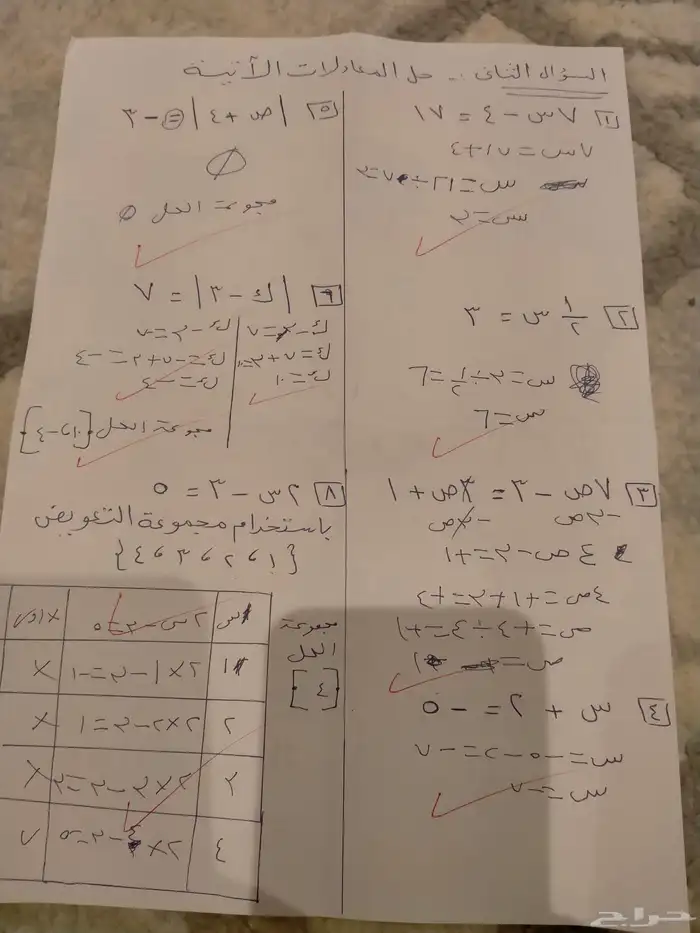 السؤال الثاني :. حل المعادلات الآتية
١ ٧س - ٤ = ١٧
٧س = ١٧ + ٤
س = ٢١ ÷ ٧ = ٣
س = ٣
٢ ١/٢ س = ٣
س = ٣ ÷ ١/٢ = ٦
س = ٦
٣ ٧ص - ٣ = ٣ص + ١
-٣ص -٣ص
٤ص - ٣ = +١
٤ص = +١ + ٣ = +٤
ص = +٤ ÷ ٤ = +١
ص = +١
٤ س + ٢ = -٥
س = -٥ - ٢ = -٧
س = -٧
٥ |ص + ٤| = -٣
∅
مجموعة الحل ∅
٦ |ك - ٣| = ٧
ك - ٣ = ٧ ك - ٣ = -٧
ك = ٧ + ٣ = ١٠ ك = -٧ + ٣ = -٤
ك = ١٠ ك = -٤
مجموعة الحل {١٠، -٤}
٨ ٢س - ٣ = ٥
باستخدام مجموعة التعويض
{١، ٢، ٣، ٤}
مجموعة
الحل
{٤}
س ٢س - ٣ = ٥
١ ٢×١ - ٣ = -١ ×
٢ ٢×٢ - ٣ = ١ ×
٣ ٢×٣ - ٣ = ٣ ×
٤ ٢×٤ - ٣ = ٥ ✓
حراج